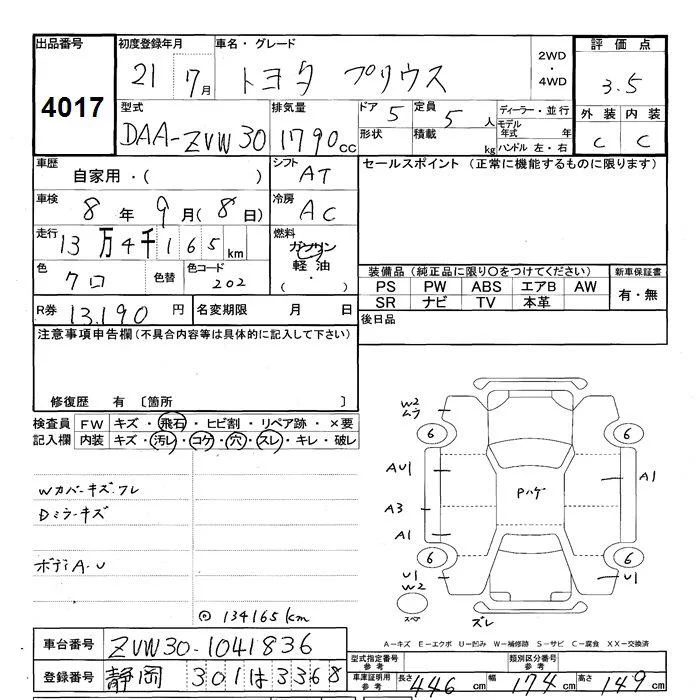 出品番号 初度登録年月 車名・グレード 2WD・4WD 評価点
4017 21 7月 トヨタ プリウス 3.5
型式 排気量 ドア 5 定員 5人 ディーラー・並行 外装 内装
DAA-ZVW30 1790cc 形状 積載 kg モデル年式 年 C C
ハンドル 左・右
車歴 自家用・( ) シフト AT セールスポイント (正常に機能するものに限ります)
車検 8年 9月(8日) 冷房 AC
走行 13万4千165km 燃料 ガソリン・軽油・( )
色 クロ 色替 色コード 202
装備品 (純正品に限り〇をつけてください) 新車保証書
PS PW ABS エアB AW 有・無
SR ナビ TV 本革
R券 13,190円 名変期限 月 日 後日品
注意事項申告欄 (不具合内容等は具体的に記入して下さい)
修復歴 有 〔箇所 〕
検査員 FW キズ・飛石・ヒビ割・リペア跡・×要
記入欄 内装 キズ・汚レ・コゲ・穴・スレ・キレ・破レ
Wカバーキズ.フレ
Dミラーキズ
ボディA.U
◎ 134165km
W2
ムラ
6 6
AU1 A1
Pハゲ
A3
A1
6 6
U1 U1
W2
スペア ズレ
A-キズ E-エクボ U-凹み W-補修跡 S-サビ C-腐食 XX-交換済
車台番号 ZVW30-1041836 型式指定番号 参考 類別区分番号 参考
登録番号 静岡 301は3368 車庫証明用 参考 長さ 446cm 幅 174cm 高さ 149cm